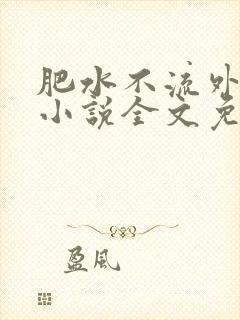 肥水不流外
小說全文免
盈風